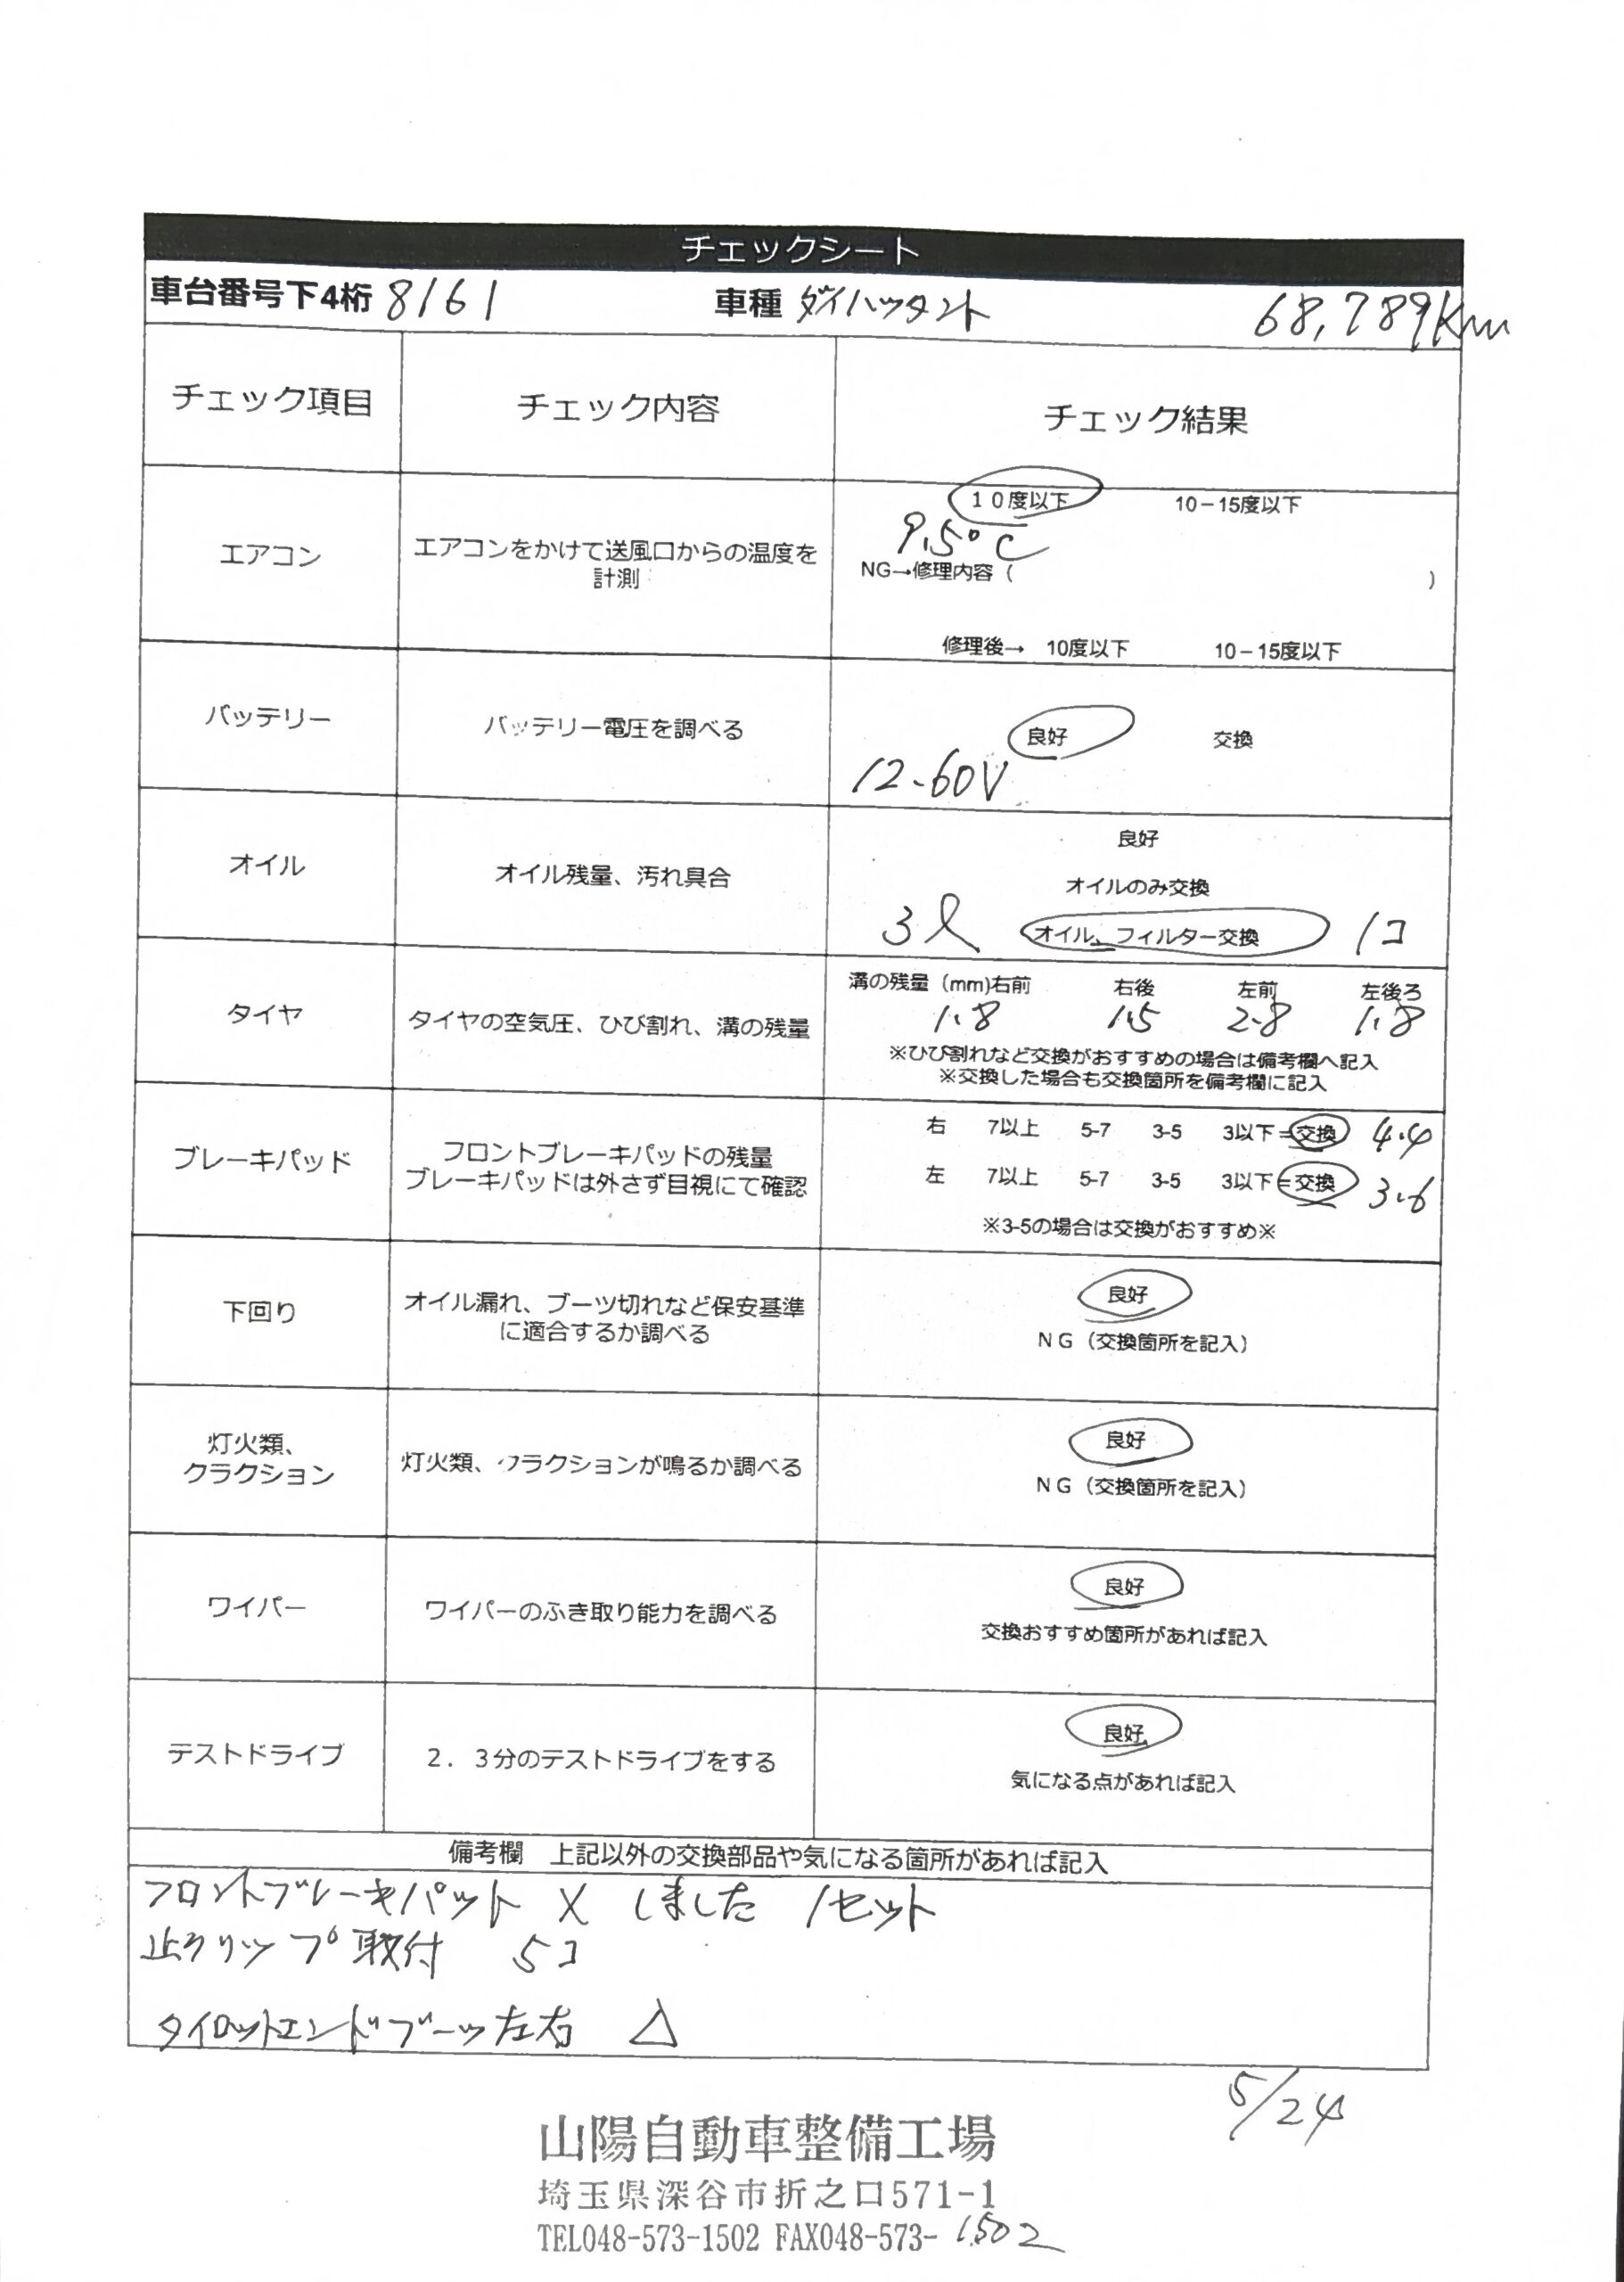 チェックシート
車台番号下4桁 8161 車種 ダイハツタント 68,789Km
チェック項目 チェック内容 チェック結果
エアコン エアコンをかけて送風口からの温度を計測 10度以下 10-15度以下
9.5°C
NG→修理内容( )
修理後→ 10度以下 10-15度以下
バッテリー バッテリー電圧を調べる 良好 交換
12.60V
オイル オイル残量、汚れ具合 良好
オイルのみ交換
3ℓ オイル、フィルター交換 1コ
タイヤ タイヤの空気圧、ひび割れ、溝の残量 溝の残量(mm)右前 右後 左前 左後ろ
1.8 1.5 2.8 1.8
※ひび割れなど交換がおすすめの場合は備考欄へ記入
※交換した場合も交換箇所を備考欄に記入
ブレーキパッド フロントブレーキパッドの残量
ブレーキパッドは外さず目視にて確認
右 7以上 5-7 3-5 3以下=交換 4.4
左 7以上 5-7 3-5 3以下=交換 3.6
※3-5の場合は交換がおすすめ※
下回り オイル漏れ、ブーツ切れなど保安基準
に適合するか調べる
良好
NG(交換箇所を記入)
灯火類、
クラクション
灯火類、クラクションが鳴るか調べる
良好
NG(交換箇所を記入)
ワイパー ワイパーのふき取り能力を調べる 良好
交換おすすめ箇所があれば記入
テストドライブ 2.3分のテストドライブをする 良好
気になる点があれば記入
備考欄 上記以外の交換部品や気になる箇所があれば記入
フロントブレーキパット X しました 1セット
止クリップ取付 5コ
タイロットエンドブーツ左右 △
5/24
山陽自動車整備工場
埼玉県深谷市折之口571-1
TEL048-573-1502 FAX048-573-1502